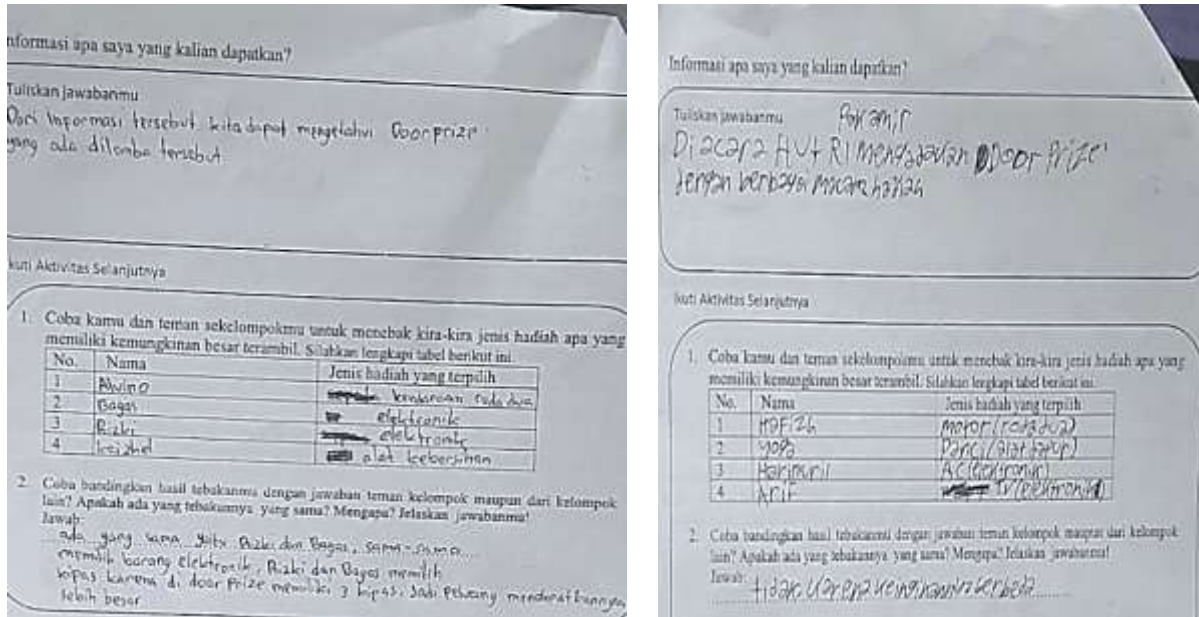 nformasi apa saya yang kalian dapatkan?
Tuliskan jawabanmu
Dari informasi tersebut kita dapat mengetahui Doorprize
yang ada dilomba tersebut
kuti Aktivitas Selanjutnya
1. Coba kamu dan teman sekelompokmu untuk menebak kira-kira jenis hadiah apa yang
memiliki kemungkinan besar terambil. Silahkan lengkapi tabel berikut ini.
No. Nama Jenis hadiah yang terpilih
1 Alvino kendaraan roda dua
2 Bagas elektronik
3 Rizki elektronik
4 alat kebersihan
2. Coba bandingkan hasil tebakanmu dengan jawaban teman kelompok maupun dari kelompok
lain? Apakah ada yang tebakannya yang sama? Mengapa? Jelaskan jawabanmu!
Jawab:
ada yang sama yaitu Rizki dan Bagas, sama-sama
memilih barang elektronik, Rizki dan Bagas memilih
kipas karena di door prize memiliki 3 kipas. Jadi peluang mendapatkannya
lebih besar
Informasi apa saya yang kalian dapatkan?
Tuliskan jawabanmu
Diacara HUT RI mengadakan Door Prize
dengan berbagai macam hadiah
Ikuti Aktivitas Selanjutnya
1. Coba kamu dan teman sekelompokmu untuk menebak kira-kira jenis hadiah apa yang
memiliki kemungkinan besar terambil. Silahkan lengkapi tabel berikut ini.
No. Nama Jenis hadiah yang terpilih
1 Hafizh motor (roda dua)
2 Yoga Panci (alat dapur)
3 AC (elektronik)
4 Arif TV (elektronik)
2. Coba bandingkan hasil tebakanmu dengan jawaban teman kelompok maupun dari kelompok
lain? Apakah ada yang tebakannya yang sama? Mengapa? Jelaskan jawabanmu!
Jawab:
tidak, karena keinginannya berbeda